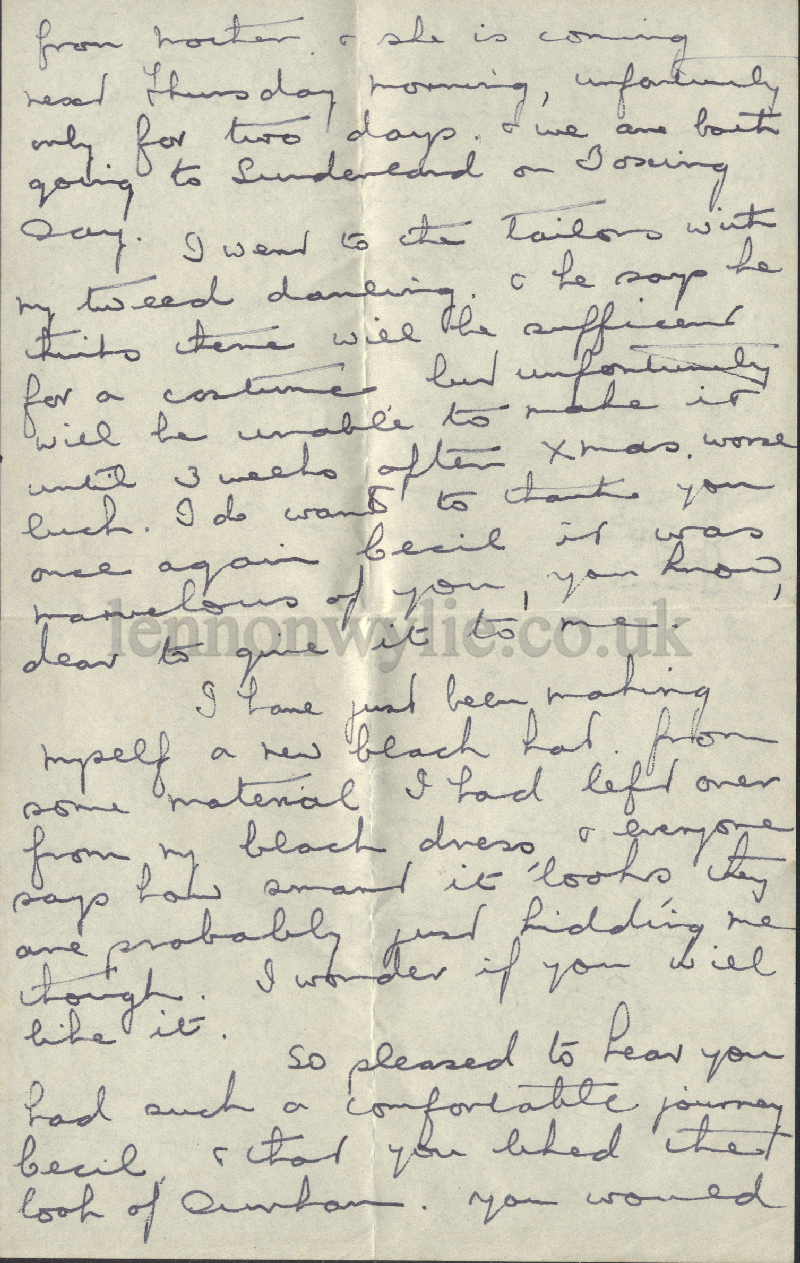 from mother & she is coming
next Thursday morning, unfortunly
only for two days. & we are both
going to Sunderland on Boxing
Day. I went to the tailors with
my tweed darling. & he says he
thinks there will be sufficent
for a costume, but unfortunly
will be unable to make it
until 3 weeks after Xmas. worse
luck. I do want to thank you
once again Cecil it was
marvelous of you, you know,
dear to give it to me.
lennonwylie.co.uk
I have just been making
myself a new black hat. from
some material I had left over
from my black dress, & everyone
says how smart it looks they
are probably just kidding me
though. I wonder if you will
like it.
So pleased to hear you
had such a comfortable journey
Cecil, & that you liked the
look of Durham. you would